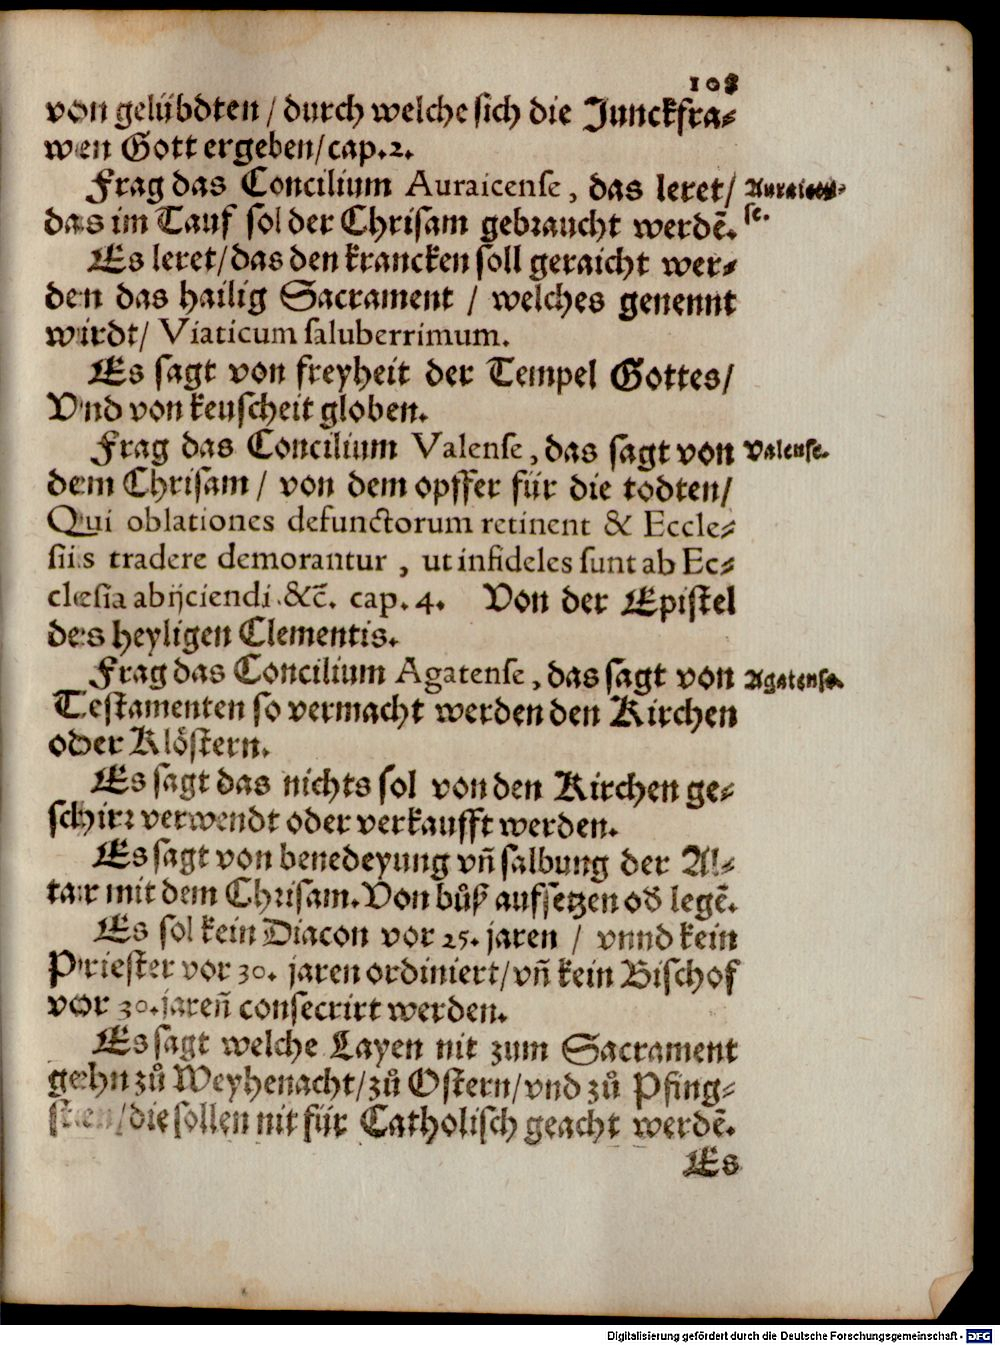 108
von gelübdten / durch welche sich die Junckfra⸗
wen Gott ergeben/cap.2.
Frag das Concilium Auraicense, das leret/
Auraicen⸗
se.
das im Tauf sol der Chrisam gebraucht werdē.
Es leret/das den krancken soll geraicht wer⸗
den das hailig Sacrament / welches genennt
wirdt/ Viaticum saluberrimum.
Es sagt von freyheit der Tempel Gottes/
Vnd von keuscheit globen.
Frag das Concilium Valense, das sagt von
Valense.
dem Chrisam / von dem opffer für die todten/
Qui oblationes defunctorum retinent & Eccle⸗
siis tradere demorantur, ut infideles sunt ab Ec⸗
clæsia abijciendi &c̄. cap. 4. Von der Epistel
des heyligen Clementis.
Frag das Concilium Agatense, das sagt von
Agatense.
Testamenten so vermacht werden den Kirchen
oder Klöstern.
Es sagt das nichts sol von den Kirchen ge⸗
schirr verwendt oder verkaufft werden.
Es sagt von benedeyung vñ salbung der Al⸗
tar mit dem Chrisam. Von bůß aufsetzen od legē.
Es sol kein Diacon vor 25. jaren / vnnd kein
Priester vor 30. jaren ordiniert/vñ kein Bischof
vor 30. jareñ consecrirt werden.
Es sagt welche Layen nit zum Sacrament
gehn zů Weyhenacht/zů Ostern/vnd zů Pfing⸗
sten/die sollen nit für Catholisch geacht werdē.
Es
Digitalisierung gefördert durch die Deutsche Forschungsgemeinschaft - DFG